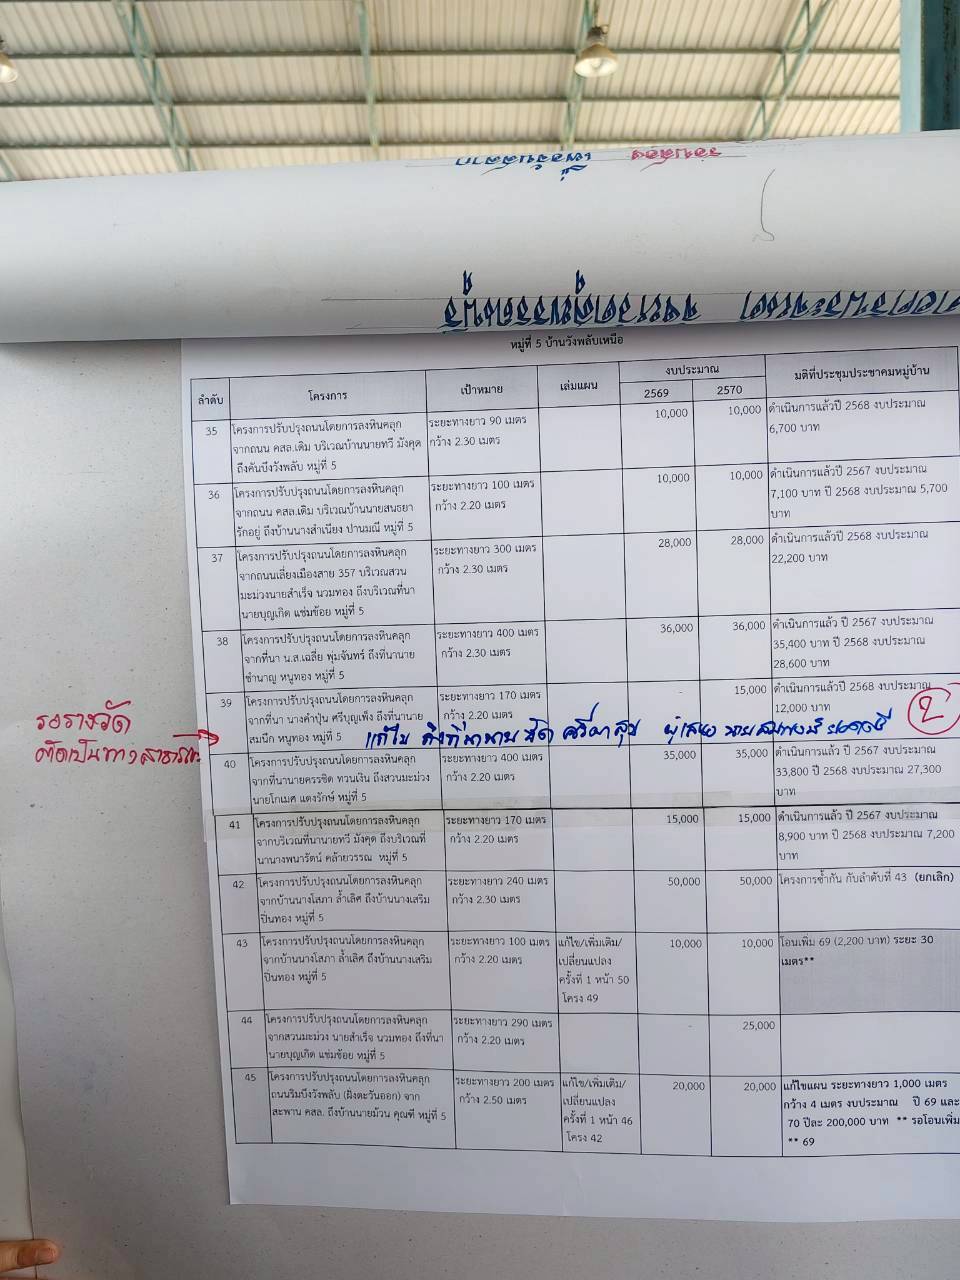 หมู่ที่ 5 บ้านวังพลับเหนือ
ลำดับ โครงการ เป้าหมาย เล่มแผน งบประมาณ มติที่ประชุมประชาคมหมู่บ้าน
2569 2570
35 โครงการปรับปรุงถนนโดยการลงหินคลุก ระยะทางยาว 90 เมตร 10,000 10,000 ดำเนินการแล้วปี 2568 งบประมาณ
จากถนน คสล.เดิม บริเวณบ้านนายทวี มังคุด กว้าง 2.30 เมตร 6,700 บาท
ถึงคันบึงวังพลับ หมู่ที่ 5
36 โครงการปรับปรุงถนนโดยการลงหินคลุก ระยะทางยาว 100 เมตร 10,000 10,000 ดำเนินการแล้วปี 2567 งบประมาณ
จากถนน คสล.เดิม บริเวณบ้านนายสนธยา กว้าง 2.20 เมตร 7,100 บาท ปี 2568 งบประมาณ 5,700
รักอยู่ ถึงบ้านนางสำเนียง ปานมณี หมู่ที่ 5 บาท
37 โครงการปรับปรุงถนนโดยการลงหินคลุก ระยะทางยาว 300 เมตร 28,000 28,000 ดำเนินการแล้วปี 2568 งบประมาณ
จากถนนเลี่ยงเมืองสาย 357 บริเวณสวน กว้าง 2.30 เมตร 22,200 บาท
มะม่วงนายสำเร็จ นวมทอง ถึงบริเวณที่นา
นายบุญเกิด แช่มช้อย หมู่ที่ 5
38 โครงการปรับปรุงถนนโดยการลงหินคลุก ระยะทางยาว 400 เมตร 36,000 36,000 ดำเนินการแล้ว ปี 2567 งบประมาณ
จากที่นา น.ส.เฉลีย พุ่มจันทร์ ถึงที่นานาย กว้าง 2.30 เมตร 35,400 บาท ปี 2568 งบประมาณ
ชำนาญ หนูทอง หมู่ที่ 5 28,600 บาท
39 โครงการปรับปรุงถนนโดยการลงหินคลุก ระยะทางยาว 170 เมตร - 15,000 ดำเนินการแล้วปี 2568 งบประมาณ
จากที่นา นางคำปุ่น ศรีบุญเพ็ง ถึงที่นานาย กว้าง 2.20 เมตร 12,000 บาท
สมนึก หนูทอง หมู่ที่ 5
รอรางวัด
แก้ไข ถึงที่นานาย
2
40 โครงการปรับปรุงถนนโดยการลงหินคลุก ระยะทางยาว 400 เมตร 35,000 35,000 ดำเนินการแล้วปี 2567 งบประมาณ
จากที่นานายครรชิต ทวนเงิน ถึงสวนมะม่วง กว้าง 2.20 เมตร 33,800 ปี 2568 งบประมาณ 27,300
นายโกเมศ แตงรักษ์ หมู่ที่ 5 บาท
41 โครงการปรับปรุงถนนโดยการลงหินคลุก ระยะทางยาว 170 เมตร 15,000 15,000 ดำเนินการแล้ว ปี 2567 งบประมาณ
จากบริเวณที่นานายทวี มังคุด ถึงบริเวณที่ กว้าง 2.20 เมตร 8,900 บาท ปี 2568 งบประมาณ 7,200
นานางพนารัตน์ คล้ายวรรณ หมู่ที่ 5 บาท
42 โครงการปรับปรุงถนนโดยการลงหินคลุก ระยะทางยาว 240 เมตร 50,000 50,000 โครงการซ้ำกัน กับลำดับที่ 43 (ยกเลิก)
จากบ้านนางโสภา ล้ำเลิศ ถึงบ้านนางเสริม กว้าง 2.30 เมตร
ปิ่นทอง หมู่ที่ 5
43 โครงการปรับปรุงถนนโดยการลงหินคลุก ระยะทางยาว 100 เมตร แก้ไข/เพิ่มเติม/ 10,000 10,000 โอนเพิ่ม 69 (2,200 บาท) ระยะ 30
จากบ้านนางโสภา ล้ำเลิศ ถึงบ้านนางเสริม กว้าง 2.20 เมตร เปลี่ยนแปลง เมตร**
ปิ่นทอง หมู่ที่ 5 ครั้งที่ 1 หน้า 50
โครง 49
44 โครงการปรับปรุงถนนโดยการลงหินคลุก ระยะทางยาว 290 เมตร - 25,000
จากสวนมะม่วง นายสำเร็จ นวมทอง ถึงที่นา กว้าง 2.20 เมตร
นายบุญเกิด แช่มช้อย หมู่ที่ 5
45 โครงการปรับปรุงถนนโดยการลงหินคลุก ระยะทางยาว 200 เมตร แก้ไข/เพิ่มเติม/ 20,000 20,000 แก้ไขแผน ระยะทางยาว 1,000 เมตร
ถนนริมบึงวังพลับ (ฝั่งตะวันออก) จาก กว้าง 2.50 เมตร เปลี่ยนแปลง กว้าง 4 เมตร งบประมาณ ปี 69 และ
สะพาน คสล. ถึงบ้านนายม้วน คุณฑี หมู่ที่ 5 ครั้งที่ 1 หน้า 46 70 ปีละ 200,000 บาท ** รอโอนเพิ่ม
โครง 42 ** 69